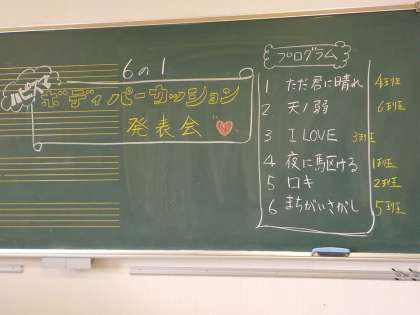 6の1
ハピスマ
ボディパーカッション
発表会
プログラム
1 ただ君に晴れ 4班
2 天ノ弱 6班
3 I LOVE 3班
4 夜に駆ける 1班
5 ロキ 2班
6 まちがいさがし 5班